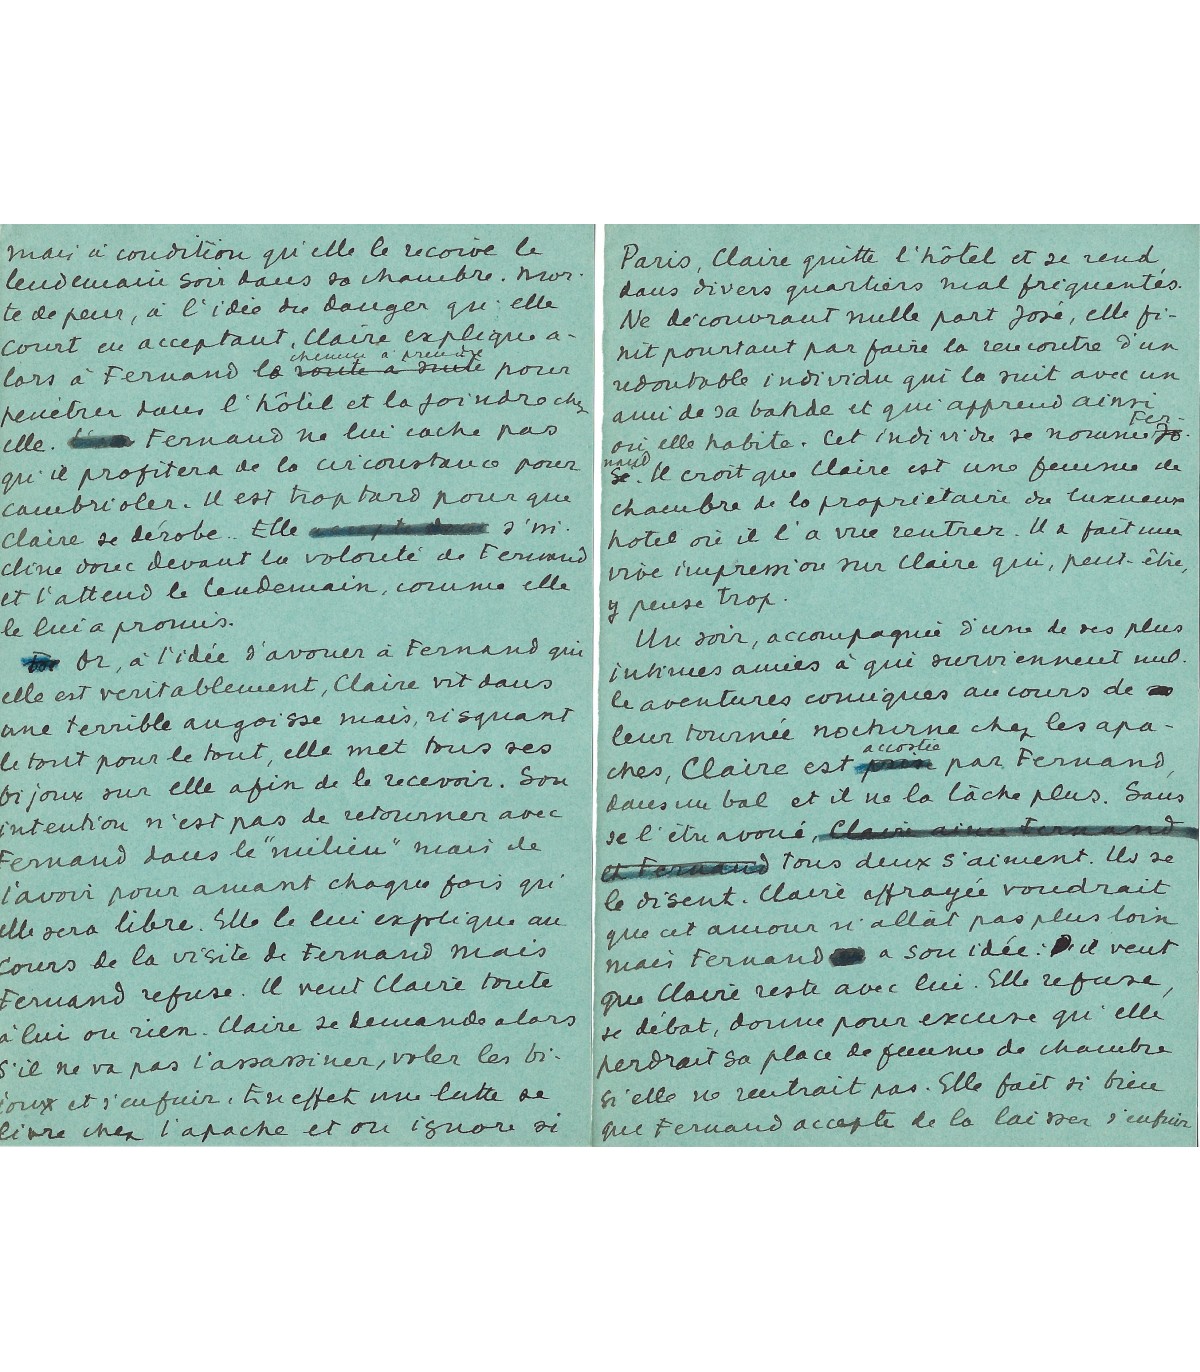 mais à condition qu'elle le reçoive le
lendemain soir dans sa chambre. Mor-
te de peur, à l'idée du danger qu'elle
court en acceptant, Claire explique a-
chemin à prendre
lors à Fernand le route à suite pour
pénétrer dans l'hôtel et la joindre chez
elle. Fernand ne lui cache pas
qu'il profitera de la circonstance pour
cambrioler. Il est trop tard pour que
Claire se dérobe.. Elle s'in-
cline donc devant la volonté de Fernand
et l'attend le lendemain, comme elle
le lui a promis.
Or, à l'idée d'avouer à Fernand qui
elle est véritablement, Claire vit dans
une terrible angoisse mais, risquant
le tout pour le tout, elle met tous ses
bijoux sur elle afin de le recevoir. Son
intention n'est pas de retourner avec
Fernand dans le "milieu" mais de
l'avoir pour amant chaque fois qu'
elle sera libre. Elle le lui explique au
cours de la visite de Fernand mais
Fernand refuse. Il veut Claire toute
à lui ou rien. Claire se demande alors
s'il ne va pas l'assassiner, voler les bi-
joux et s'enfuir. En effet une lutte se
livre chez l'apache et on ignore si
Paris, Claire quitte l'hôtel et se rend
dans divers quartiers mal fréquentés.
Ne découvrant nulle part José, elle fi-
nit pourtant par faire la rencontre d'un
redoutable individu qui la suit avec un
ami de sa bande et qui apprend ainsi
Fer-
où elle habite. Cet individu se nomme Jo-
nand
sé. Il croit que Claire est une femme de
chambre de la propriétaire du luxueux
hôtel où il l'a vue rentrer. Il a fait une
vive impression sur Claire qui, peut-être,
y pense trop.
Un soir, accompagnée d'une de ses plus
intimes amies à qui surviennent mil-
le aventures comiques au cours de
leur tournée nocturne chez les apa-
accostée
ches, Claire est prise par Fernand,
dans un bal et il ne la lâche plus. Sans
se l'être avoué, Claire aime Fernand
et Fernand tous deux s'aiment. Ils se
le disent. Claire effrayée voudrait
que cet amour n'allât pas plus loin
mais Fernand a son idée: il veut
que Claire reste avec lui. Elle refuse,
se débat, donne pour excuse qu'elle
perdrait sa place de femme de chambre
si elle ne rentrait pas. Elle fait si bien
que Fernand accepte de la laisser s'enfuir